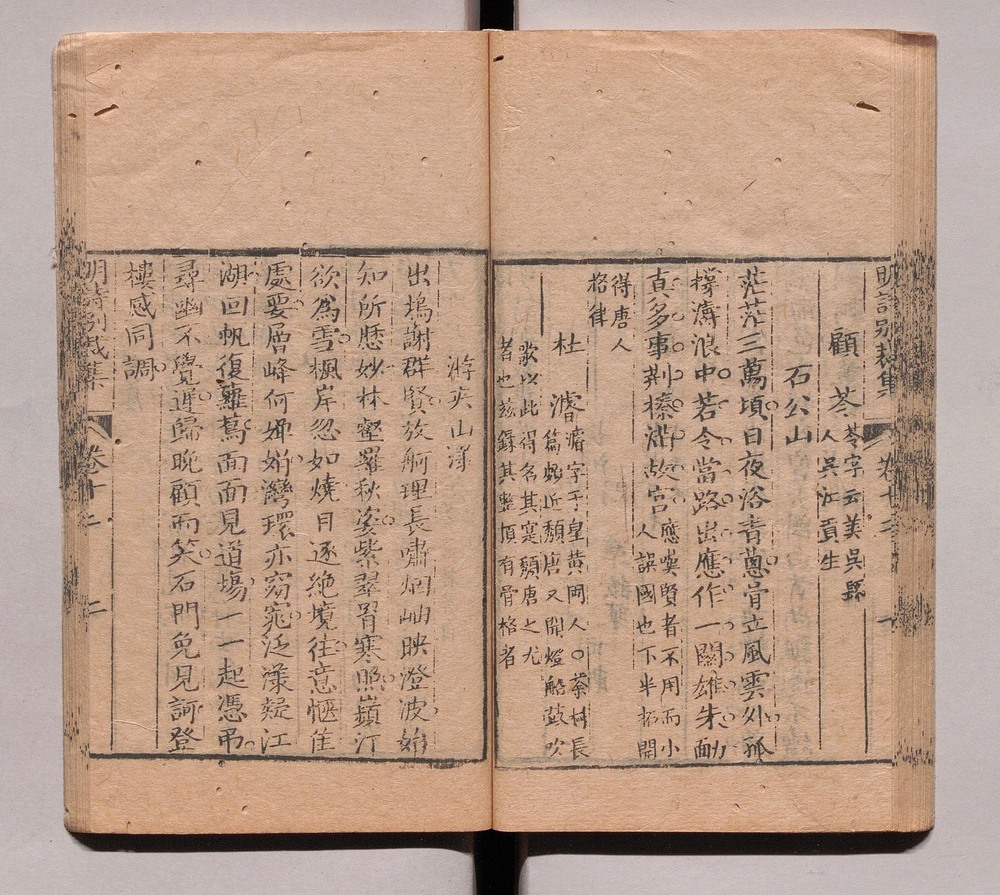 明詩別裁集
卷十二
一
顧苓
苓字云美吳縣
人吳江貢生
石公山
茫茫三萬頃日夜浴青蔥骨立風雲外孤
撐濤浪中若令當路出應作一關雄朱勔
真多事荆榛滿故宮
應嘆賢者不用而小
人誤國也下半拓開
得唐人
格律
杜濬
濬字于皇黃岡人○茶村長
篇畧近頹唐又聞燈船鼓吹
歌以此得名其寔頹唐之尤
者也茲錄其整頓有骨格者
游夾山漾
出塢謝群賢放舸理長嘯烟岫映澄波始
知所歷妙林壑羅秋姿紫翠胃寒照巔汀
欲為雪楓岸忽如燒日逐絕境往意愜隹
處要層峰何嬋娟灣環亦窈窕泛漾疑江
湖回帆復蘿蔦面面見道場一一起憑弔
尋幽不覺遲歸晚顧而笑石門免見訶登
樓感同調
明詩別裁集
卷十二
二